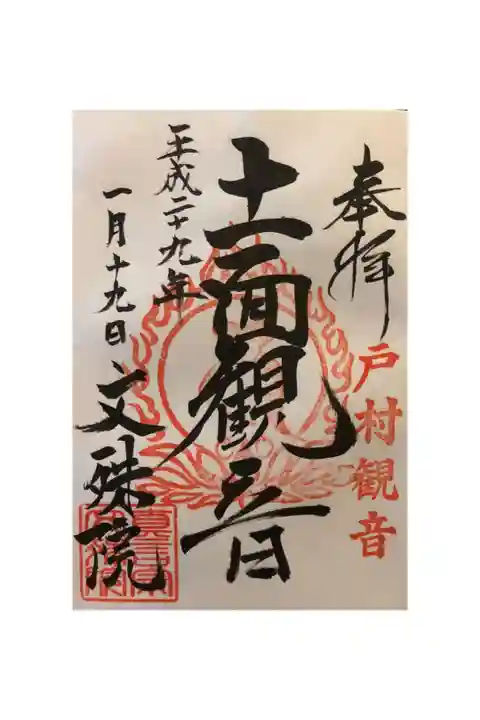 奉拝
戸村観音
十一面観音
平成二十九年
一月十九日
文殊院